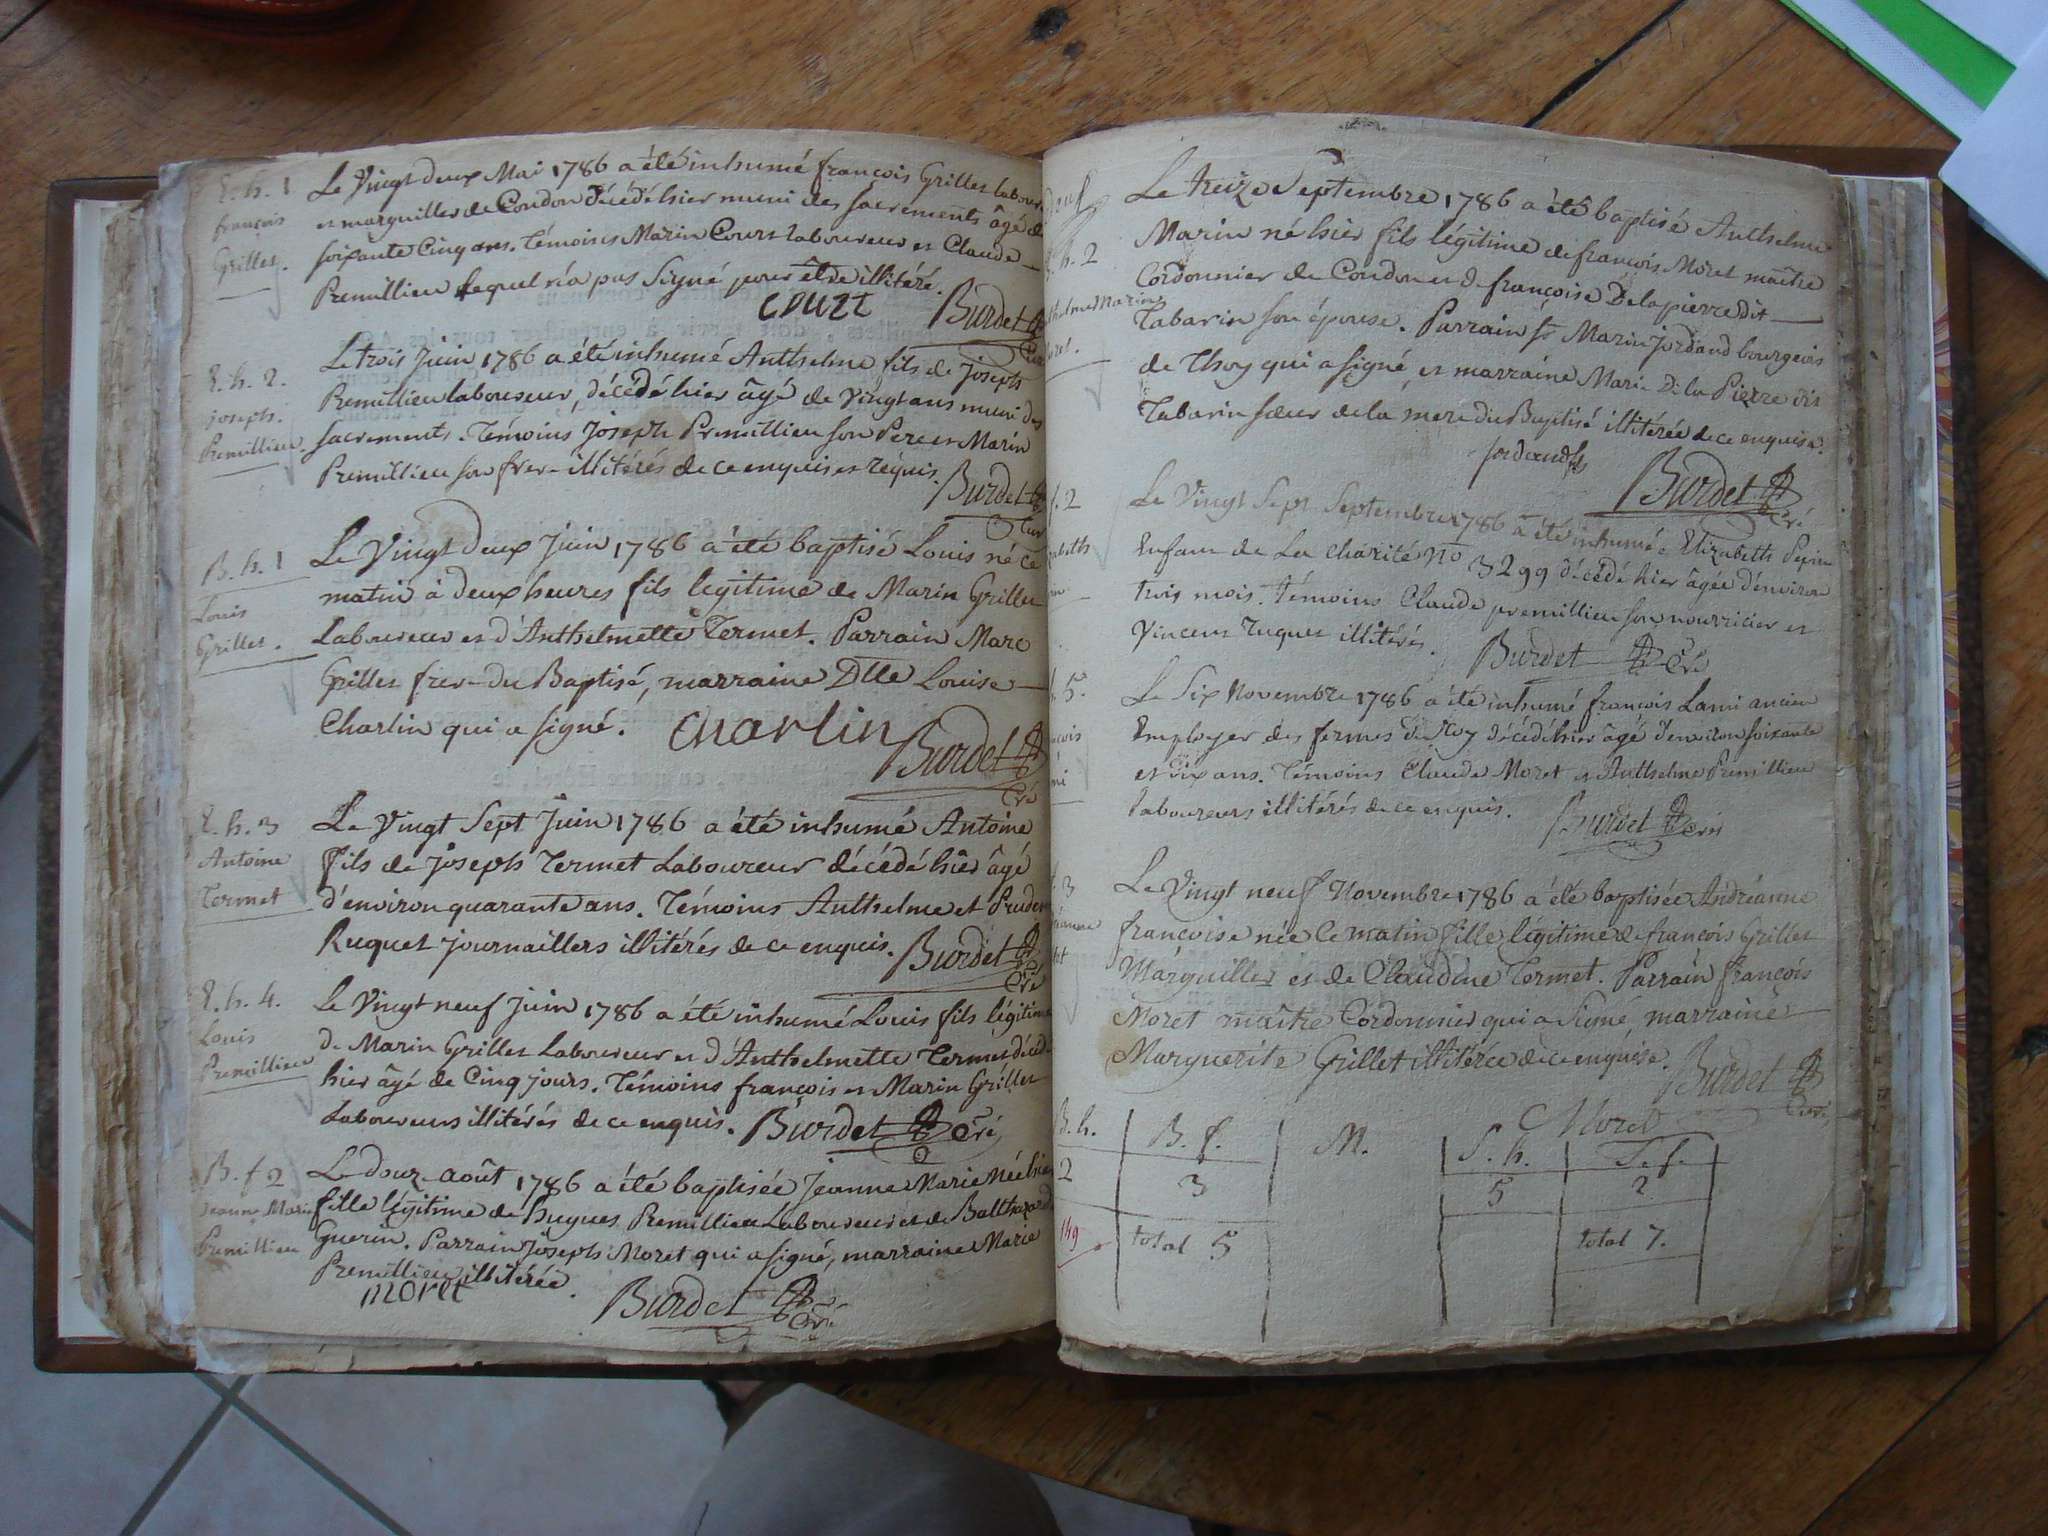 S. h. 1
françois
Grillet.
Le Vingt deux Mai 1786 a été inhumé françois Grillet labour
et marguiller de Condon décédé hier muni des sacrements âgé de
soixante Cinq ans. Témoins Marin Court laboureur et Claude
Premillieu lequel n'a pas Signé pour être illitéré.
COURT Burdet
Curé
S. h. 2.
joseph.
Premillieu.
Le trois Juin 1786 a été inhumé Anthelme fils de joseph
Premillieu laboureur, décédé hier âgé de vingt ans muni des
sacrements. Témoins Joseph Premillieu son Pere et Marin
Premillieu son frere illitérés de ce enquis et requis.
Burdet
Cur
B. h. 1
Louis
Grillet.
Le Vingt deux Juin 1786 a été baptisé Louis né ce
matin à deux heures fils legitime de Marin Grillet
Laboureur et d'Anthelmette Termet. Parrain Marc
Grillet frere du Baptisé, marraine Dlle Louise
Charlin qui a signé. Charlin Burdet
Cré
S. h. 3
Antoine
Termet
Le Vingt Sept Juin 1786 a été inhumé Antoine
fils de joseph Termet Laboureur décédé hier âgé
d'environ quarante ans. Témoins Anthelme et Pruden
Ruquet journaillers illitérés de ce enquis. Burdet
Cré
S. h. 4.
Louis
Premillieu
Le Vingt neuf Juin 1786 a été inhumé Louis fils légitime
de Marin Grillet Laboureur et d'Anthelmette Termet décéd
hier âgé de Cinq jours. Témoins françois et Marin Grillet
Laboureurs illitérés de ce enquis. Burdet Cré
B. f. 2
Jeanne Marie
Premillieu
Le douze août 1786 a été baptisée Jeanne Marie Née hier
fille légitime de hugues Premillieu Laboureur et de Balthazard
Guerin. Parrain Joseph Moret qui a signé, marraine Marie
Premillieu illitérée.
moret Burdet
Cré
B. h. 2
thelme Marin
oret.
Le treize Septembre 1786 a été baptisé Anthelme
Marin né hier fils légitime de françois Moret maitre
Cordonnier de Condon et de françoise Delapierre dit
Tabarin son épouse. Parrain sr Marin jordand bourgeois
de Thoy qui a signé, et marraine Marie De la Pierre dit
Tabarin sœur de la mere du Baptisé illitérée de ce enquise.
jordand
Burdet
Cré
f. 2
zabeth
Le Vingt Sept Septembre 1786 a été inhumée Elizabeth Pepin
Enfant de La Charité No 3299 décédé hier âgée d'environ
trois mois. Témoins Claude premillieu son nourricier et
Vincent Ruquet illitérés. Burdet Cré
h. 5.
nçois
mi
Le Six Novembre 1786 a été inhumé françois Lami ancien
Employer des fermes du Roy décédé hier âgé d'environ soixante
et dix ans. Témoins Claude Moret et Anthelme Premillieu
laboureurs illitérés de ce enquis. Burdet Cré
f. 3
réanne
Le Vingt neuf Novembre 1786 a été baptisée Andréanne
francoise née Ce matin fille légitime de françois Grillet
Marguiller et de Claudine Termet. Parrain françois
Moret maître Cordonnier qui a Signé, marraine
Marguerite Grillet illitérée de ce enquise. Burdet
Curé
Moret
B. h. B. f. M. S. h. S. f.
2 3 5 2
149 total 5 total 7.